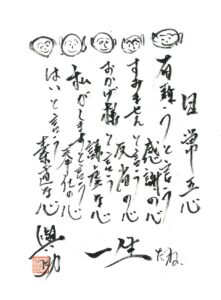 日常五心
有難うと言う
感謝の心
すみませんと言う
反省の心
おかげ様と言う
謙虚な心
私がしますと言う
奉仕の心
はいと言う
素直な心
一生だね